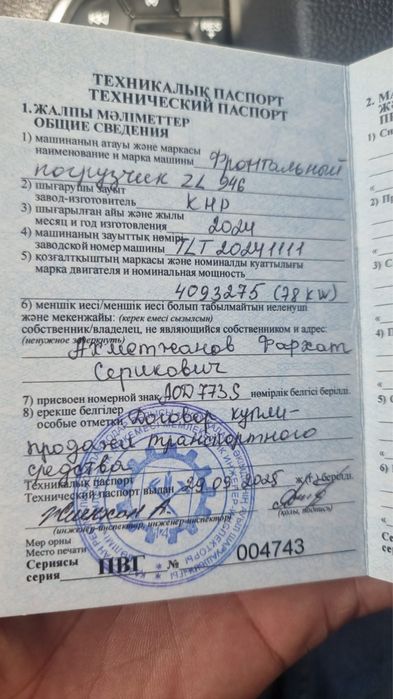 ТЕХНИКАЛЫҚ ПАСПОРТ
ТЕХНИЧЕСКИЙ ПАСПОРТ
1. ЖАЛПЫ МӘЛІМЕТТЕР
ОБЩИЕ СВЕДЕНИЯ
1) машинаның атауы және маркасы
наименование и марка машины Фронтальный
погрузчик ZL 946
2) шығарушы зауыт
завод-изготовитель КНР
3) шығарылған айы және жылы
месяц и год изготовления 2024
4) машинаның зауыттық нөмірі
заводской номер машины TLT 20241111
5) қозғалтқыштың маркасы және номиналды қуаттылығы
марка двигателя и номинальная мощность
4093275 (78 kW)
6) меншік иесі/меншік иесі болып табылмайтын иеленуші
және мекенжайы: (керек емесі сызылсын)
собственник/владелец, не являющийся собственником и адрес:
(ненужное зачеркнуть)
Ахметжанов Фархат
Серикович
7) присвоен номерной знак нөмірлік белгісі берілді.
8) ерекше белгілер
особые отметки Договор купли-
продажи транспортного
средства
Техникалық паспорт
Технический паспорт выдан 29.09.2025 ж.(г.) берілді.
(инженер-инспектор, инженер-инспекторы)
(қолы, подпись)
Мөр орны
Место печати
Сериясы
серия ПВГ № 004743
2. МА
1) Си
2) П
3) С
4)
5)
6)